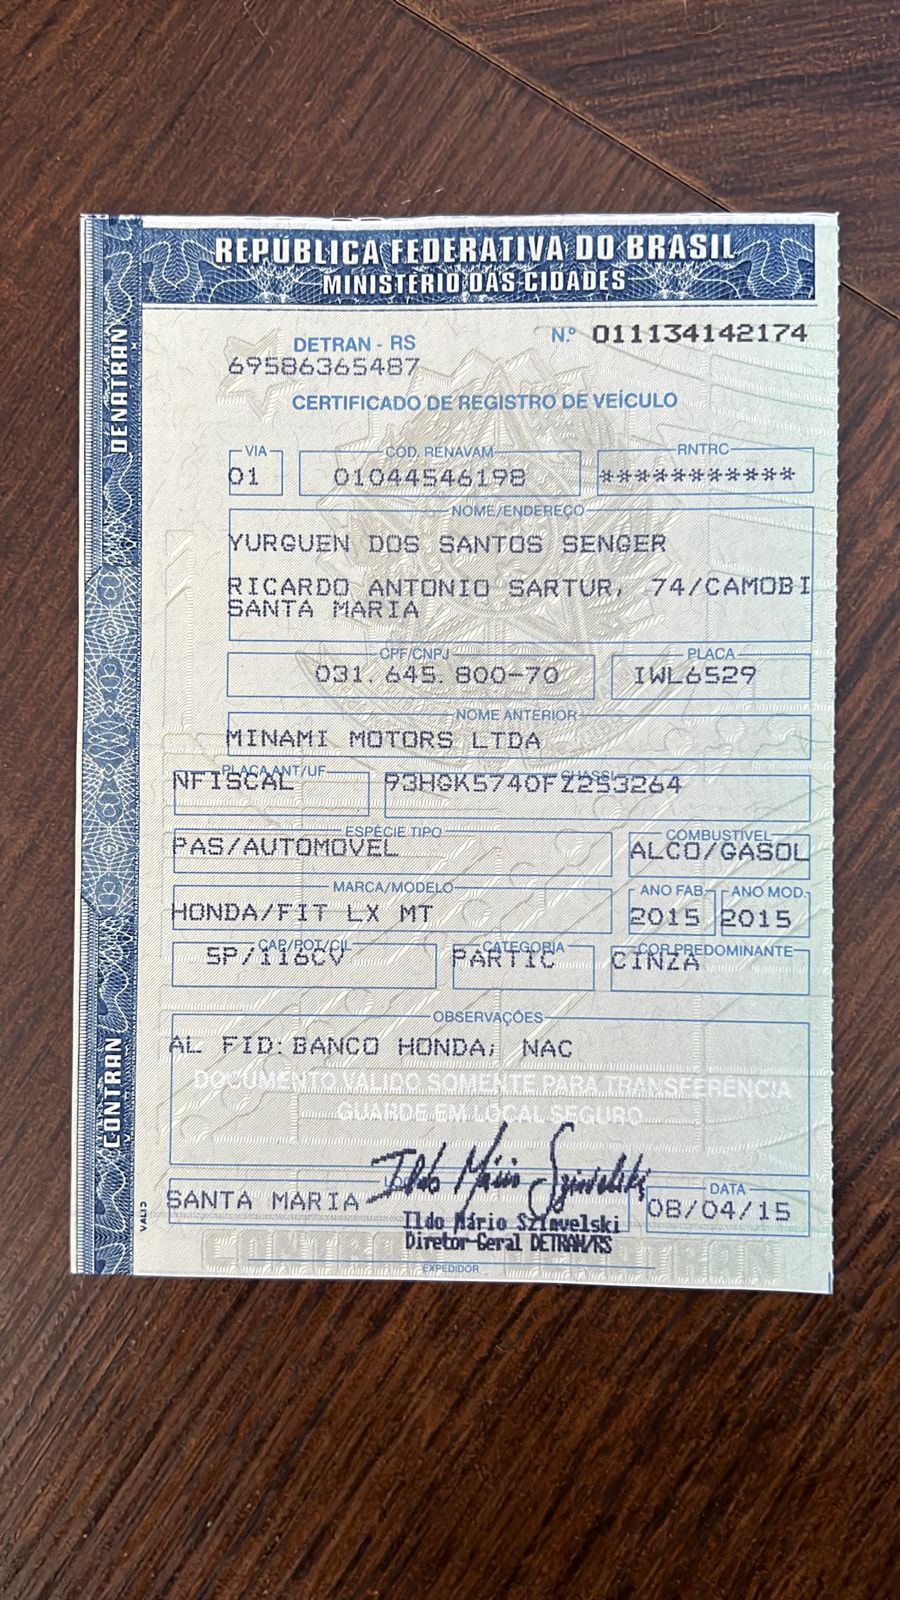 REPÚBLICA FEDERATIVA DO BRASIL
MINISTÉRIO DAS CIDADES
DENATRAN
CONTRAN
DETRAN - RS
N.º 011134142174
69586365487
CERTIFICADO DE REGISTRO DE VEÍCULO
VIA
01
CÓD. RENAVAM
01044546198
RNTRC
***********
NOME/ENDEREÇO
YURGUEN DOS SANTOS SENGER
RICARDO ANTONIO SARTUR, 74/CAMOBI
SANTA MARIA
CPF/CNPJ
031.645.800-70
PLACA
IWL6529
NOME ANTERIOR
MINAMI MOTORS LTDA
PLACA ANT/UF
NFISCAL
CHASSI
93HGK5740FZ253264
ESPÉCIE TIPO
PAS/AUTOMOVEL
COMBUSTÍVEL
ALCO/GASOL
MARCA/MODELO
HONDA/FIT LX MT
ANO FAB.
2015
ANO MOD.
2015
CAP/POT/CIL
5P/116CV
CATEGORIA
PARTIC
COR PREDOMINANTE
CINZA
OBSERVAÇÕES
AL FID:BANCO HONDA; NAC
DOCUMENTO VÁLIDO SOMENTE PARA TRANSFERÊNCIA
GUARDE EM LOCAL SEGURO
SANTA MARIA
Ildo Mário Szinvelski
DATA
08/04/15
Ildo Mário Szinvelski
Diretor-Geral DETRAN/RS
EXPEDIDOR